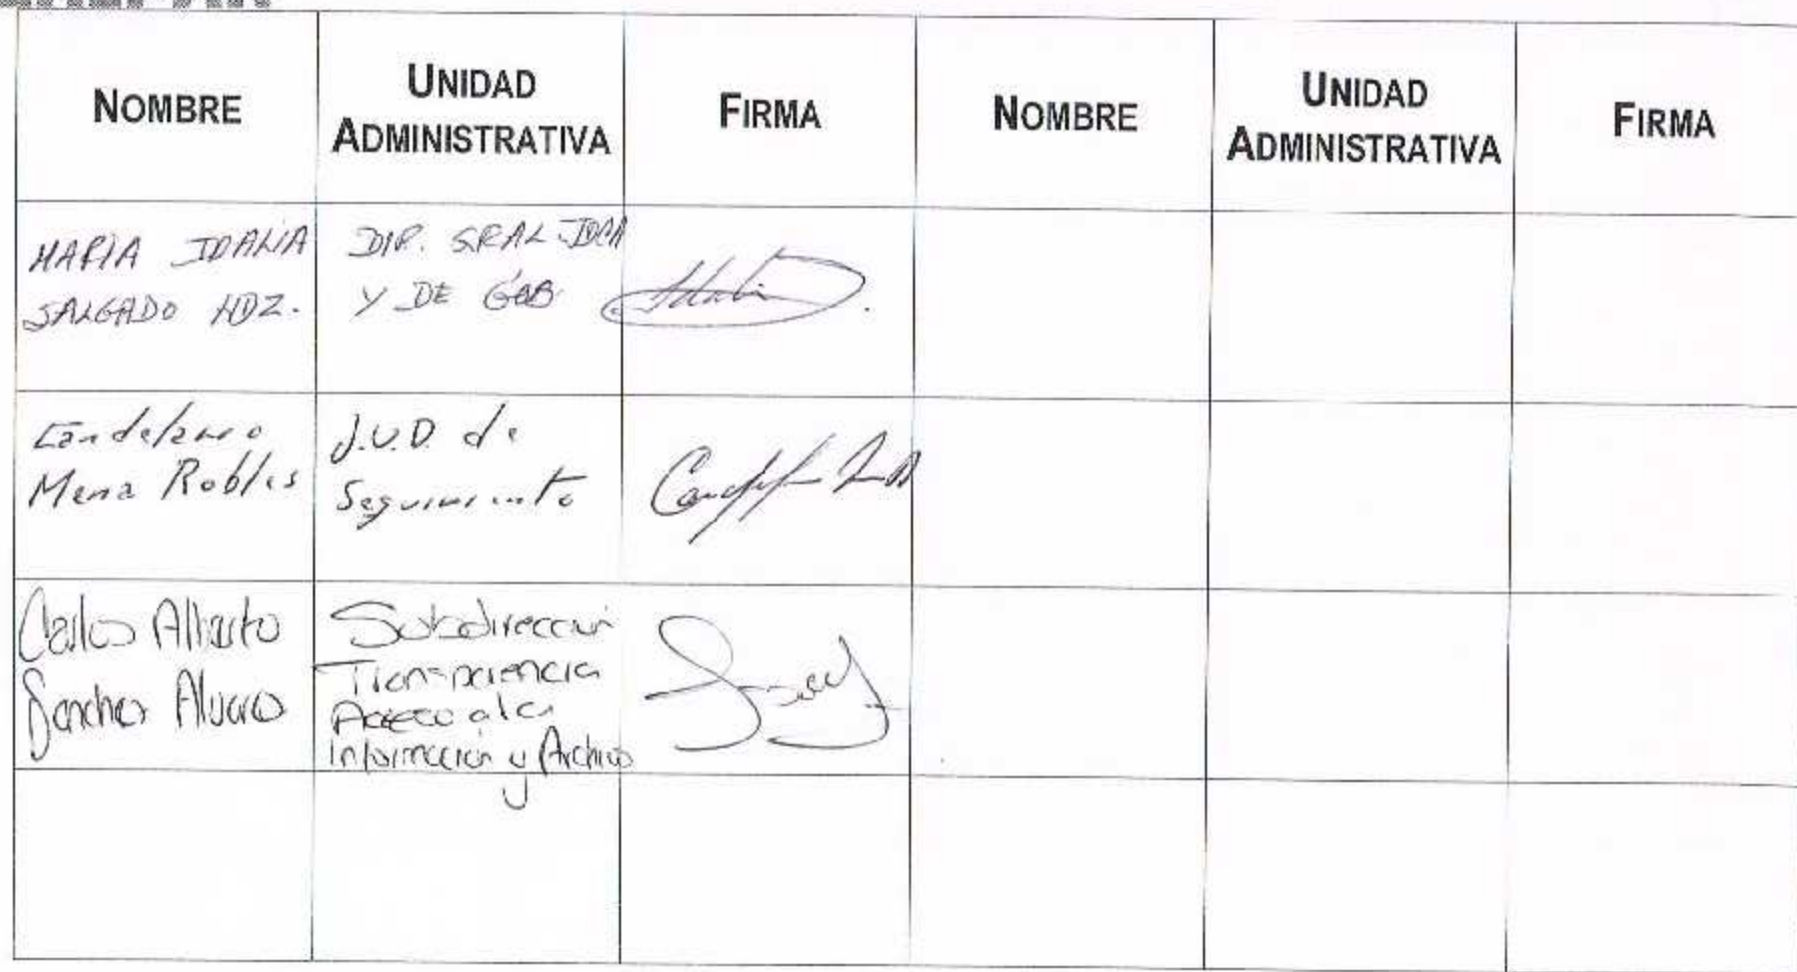 NOMBRE
UNIDAD
ADMINISTRATIVA
FIRMA
NOMBRE
UNIDAD
ADMINISTRATIVA
FIRMA
MARÍA IDALIA
SALGADO HDZ.
DIR. GRAL JDCA
Y DE GOB
Idalia
Candelario
Mena Robles
J.U.D. de
Seguimiento
Carlos Alberto
Sanchez Alvaro
Subdirección
Transparencia
Acceso a la
Información y Archivo